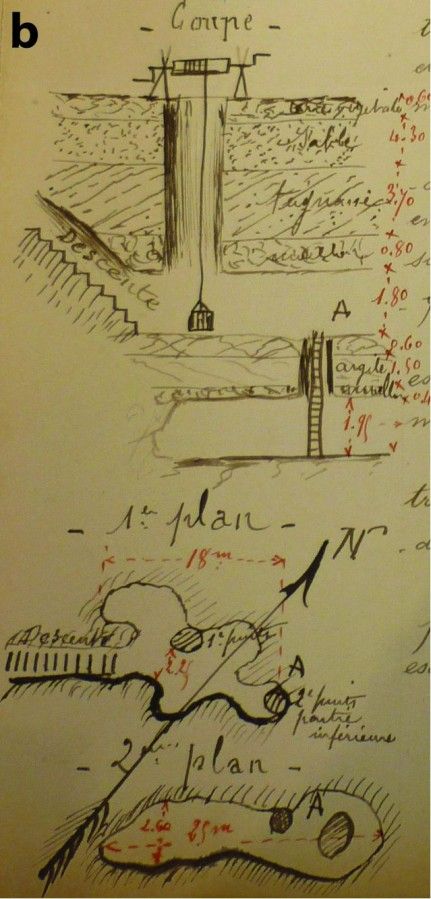 b
- Coupe -
0.60
terre végétale
Sable
4.30
3.70
Descente
0.80
1.80
A
0.60
argile
1.50
1.95
- 1er plan -
18m
N
Descente
1er puits
2.25
A
2e puits
partie
inférieure
- 2ème plan -
A
2.60
25m